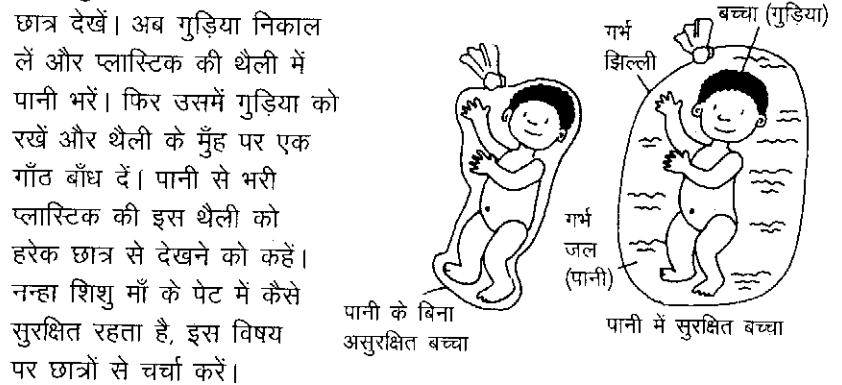 छात्र देखें। अब गुड़िया निकाल
लें और प्लास्टिक की थैली में
पानी भरें। फिर उसमें गुड़िया को
रखें और थैली के मुँह पर एक
गाँठ बाँध दें। पानी से भरी
प्लास्टिक की इस थैली को
हरेक छात्र से देखने को कहें।
नन्हा शिशु माँ के पेट में कैसे
सुरक्षित रहता है, इस विषय
पर छात्रों से चर्चा करें।
पानी के बिना
असुरक्षित बच्चा
गर्भ
झिल्ली
बच्चा (गुड़िया)
गर्भ
जल
(पानी)
पानी में सुरक्षित बच्चा